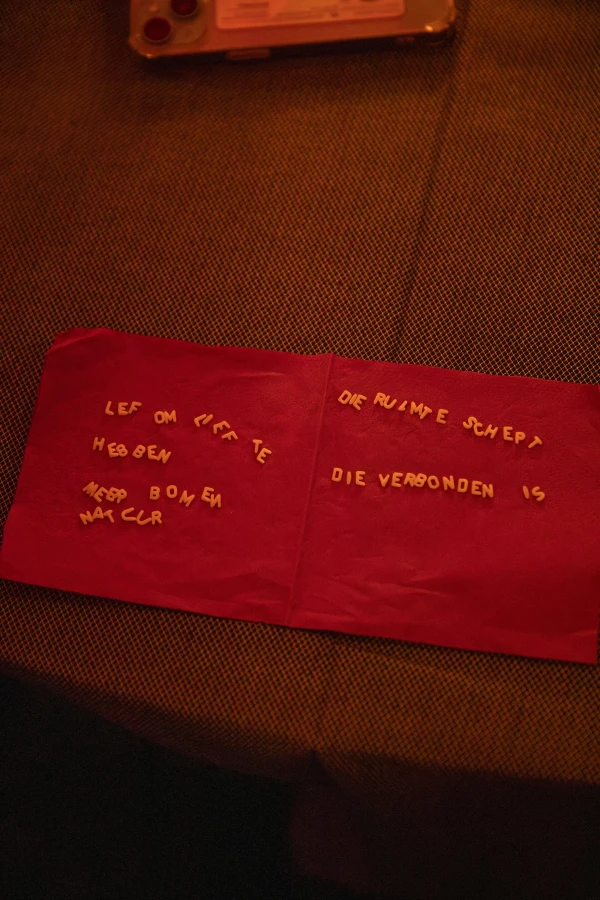 LEF OM LIEF TE
HEBBEN
MEER BOMEN
NATUUR
DIE RUIMTE SCHEPT
DIE VERBONDEN IS